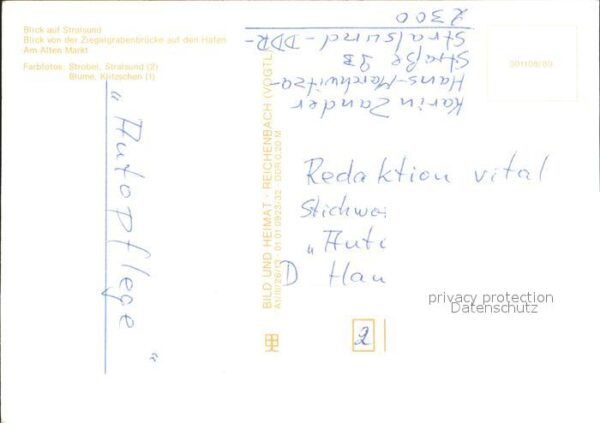 Blick auf Stralsund
Blick von der Ziegelgrabenbrücke auf den Hafen
Am Alten Markt
Farbfotos: Strobel, Stralsund (2)
Blume, Klitzschen (1)
„Autopflege“
BILD UND HEIMAT · REICHENBACH (VOGTL)
A1/III/26/13 · 01 01 0923/32 · DDR 0,20 M
Karin Zander
Hans-Marchwitza-
Straße 23
Stralsund - DDR -
2300
301108/83
Redaktion vital
Stichwo
„Aut
D Ham
2
privacy protection
Datenschutz